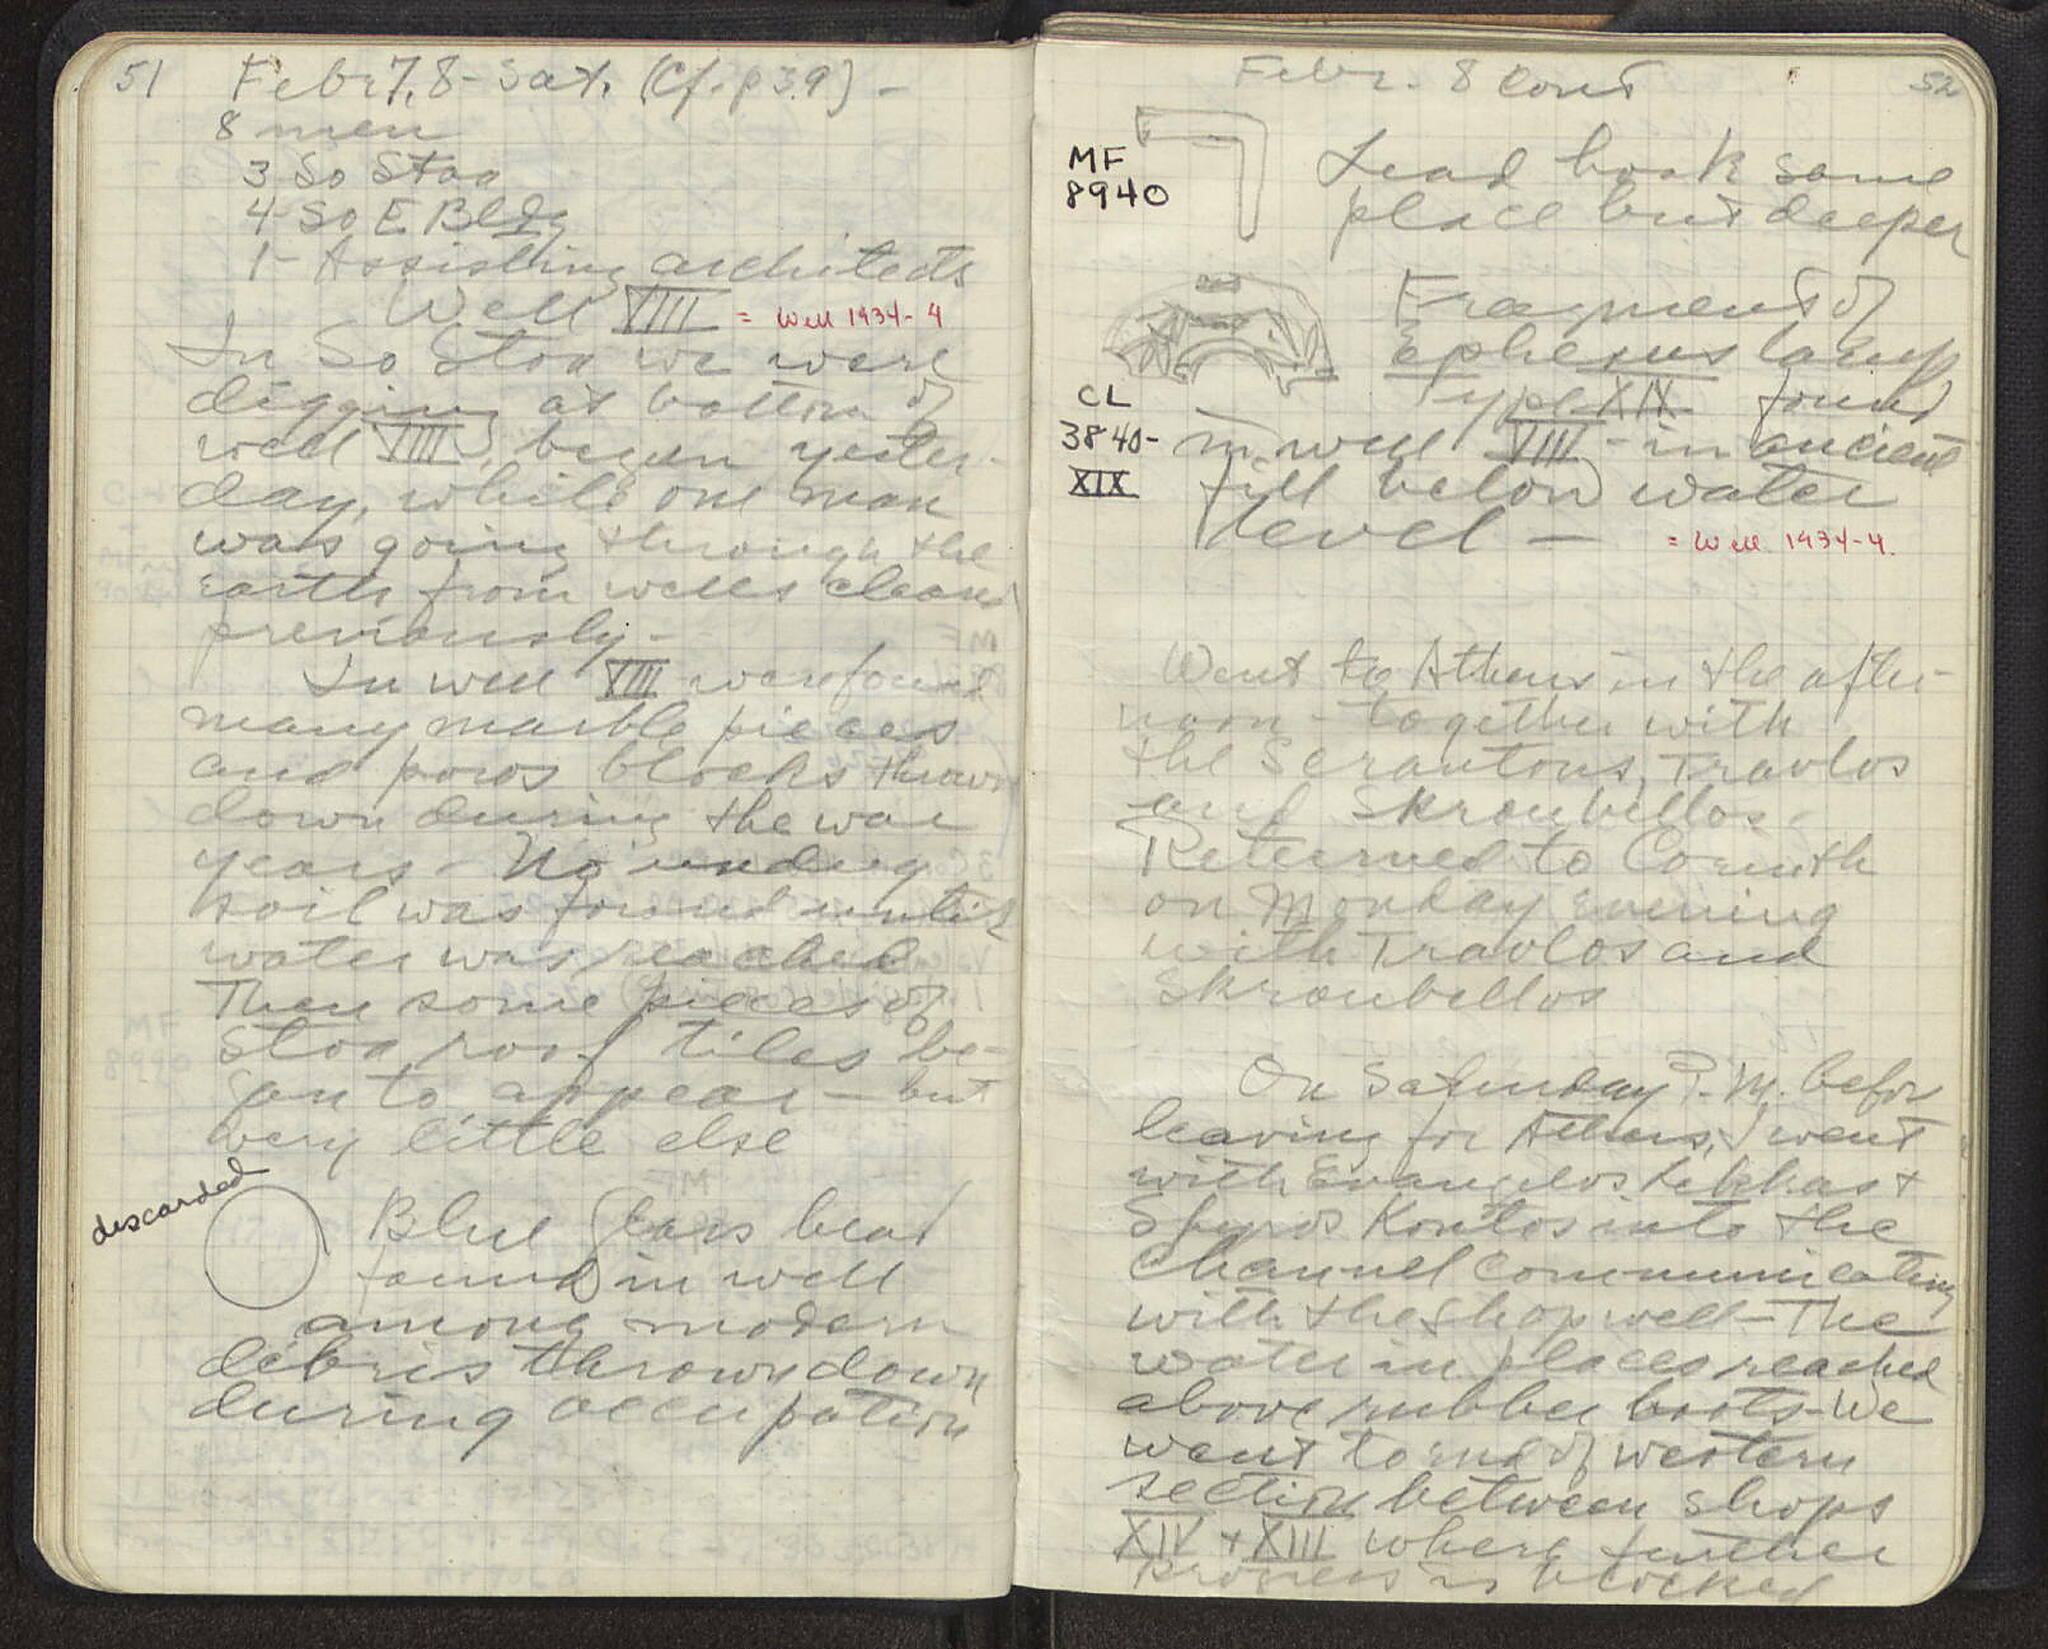 51 Febr 7, 8 - Sat. (Cf. p 39) -
8 men
3 So Stoa
4 So E Bldg
1 - Assisting architects
Well VIII = Well 1934-4
In So Stoa we were
digging at bottom of
well VIII, begun yester-
day, while one man
was going through the
earth from wells cleaned
previously -
In well VIII were found
many marble pieces
and poros blocks thrown
down during the war
years - No undug
soil was found until
water was reached
Then some pieces of
Stoa roof tiles be-
gan to appear - but
very little else
discarded
Blue glass bead
found in well
among modern
débris thrown down
during occupation
Febr. 8 cont 52
MF
8940
Lead hook same
place but deeper
Fragment of
Ephesus lamp
Type XIX found
CL
3840-
XIX
in well VIII - in ancient
fill below water
level - = Well 1934-4.
Went to Athens in the after-
noon - together with
the Scrantons, Travlos
and Skroubellos.
Returned to Corinth
on Monday evening
with Travlos and
Skroubellos
On Saturday P.M. before
leaving for Athens, I went
with Evangelos Lekkas +
Spyros Kontos into the
channel communicating
with the shop well - The
water in places reached
above rubber boots - We
went to end of western
section between shops
XIV + XIII where further
progress is blocked